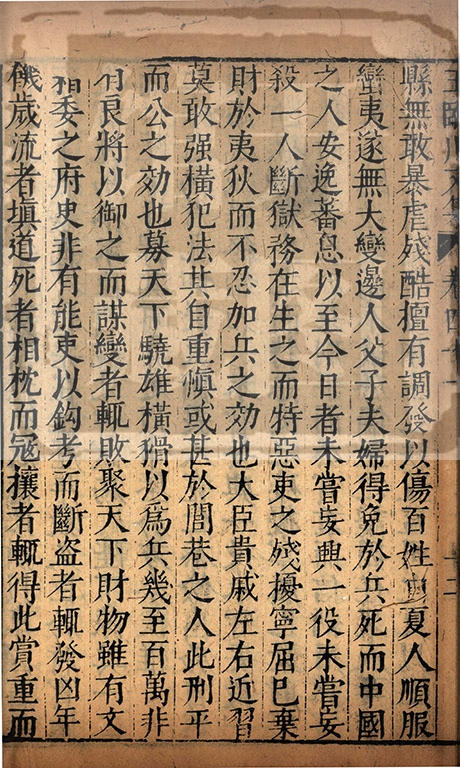 卷四十
縣無敢暴虐殘酷擅有調發以傷百姓自夏人順服
蠻夷遂無大變邊人父子夫婦得免於兵死而中國
之人安逸蕃息以至今日者未嘗妄興一役未嘗妄
殺一人斷獄務在生之而特惡吏之殘擾寧屈已棄
財於夷狄而不忍加兵之効也大臣貴戚左右近習
莫敢强橫犯法其自重慎或甚於閭巷之人此刑平
而公之効也募天下驍雄橫猾以爲兵幾至百萬非
有良將以御之而謀變者輒敗聚天下財物雖有文
籍委之府史非有能吏以鈎考而斷盗者輒發凶年
饑歲流者塡道死者相枕而冦攘者輒得此賞重而